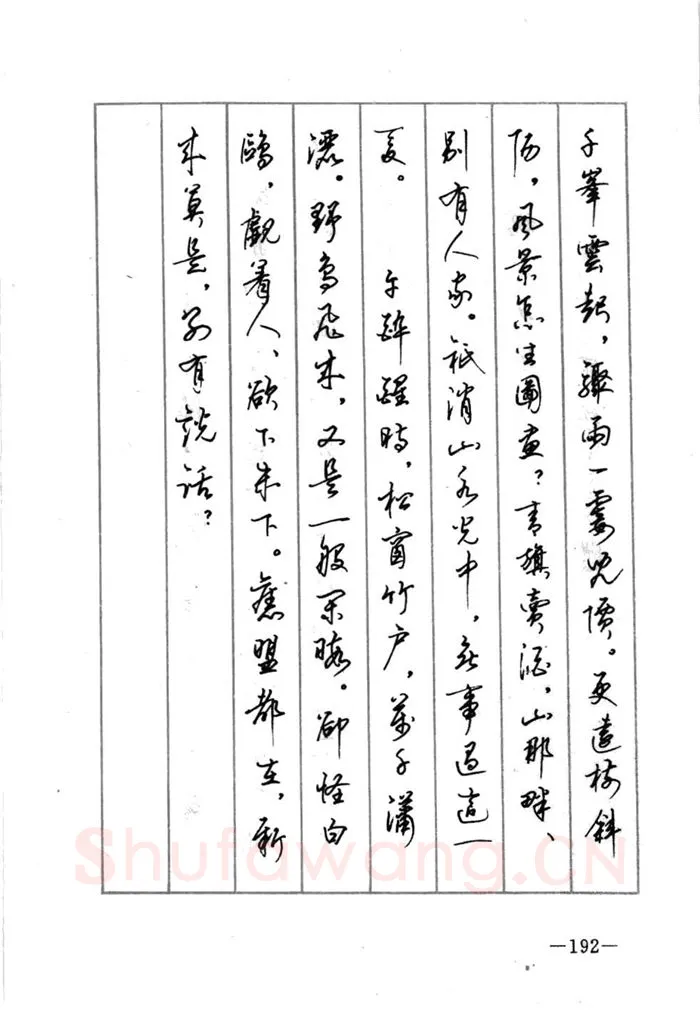 千峯雲起，驟雨一霎兒價。更遠樹斜
陽，風景怎生圖畫？青旗賣酒，山那畔、
別有人家。祇消山水光中，無事過這一
夏。　　午醉醒時，松窗竹户，萬千瀟
灑。野鳥飛來，又是一般閑暇。却怪白
鷗，覷着人、欲下未下。舊盟都在，新
來莫是，别有説话？
Shufawang.CN
—192—